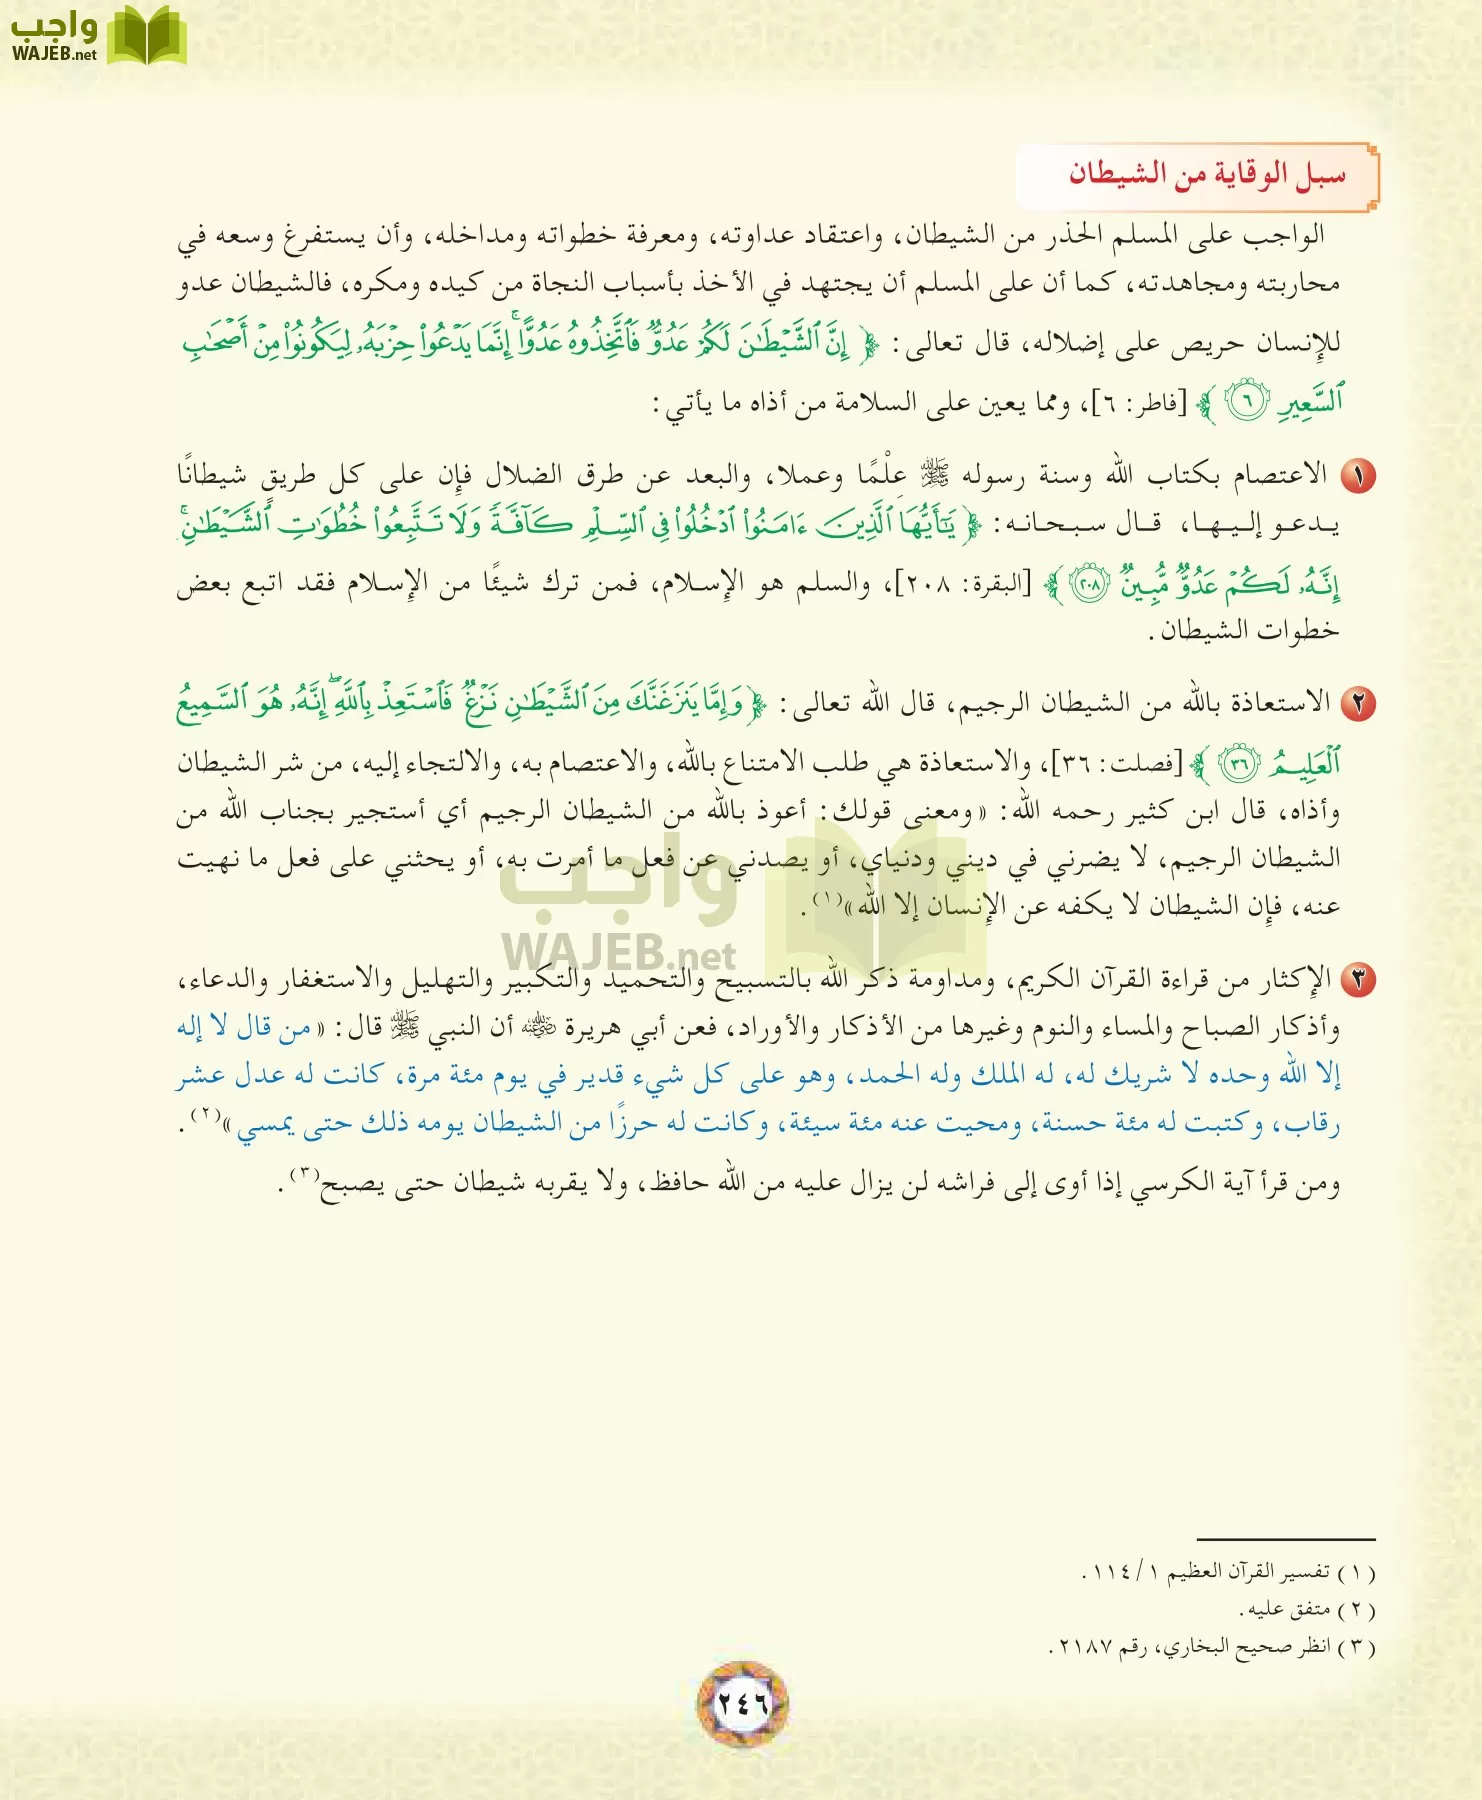 واجب
WAJEB.net
سبل الوقاية من الشيطان
الواجب على المسلم الحذر من الشيطان، واعتقاد عداوته، ومعرفة خطواته ومداخله، وأن يستفرغ وسعه في
محاربته ومجاهدته، كما أن على المسلم أن يجتهد في الأخذ بأسباب النجاة من كيده ومكره، فالشيطان عدو
للإنسان حريص على إضلاله، قال تعالى: ﴿ إِنَّ ٱلشَّيْطَٰنَ لَكُمْ عَدُوٌّ فَٱتَّخِذُوهُ عَدُوًّا ۚ إِنَّمَا يَدْعُوا۟ حِزْبَهُۥ لِيَكُونُوا۟ مِنْ أَصْحَٰبِ
ٱلسَّعِيرِ ٦ ﴾ [فاطر: ٦]، ومما يعين على السلامة من أذاه ما يأتي:
١ الاعتصام بكتاب الله وسنة رسوله ﷺ عِلْمًا وعملا، والبعد عن طرق الضلال فإن على كل طريقٍ شيطانًا
يـدعـو إليـهـا، قـال سـبـحـانـه: ﴿ يَٰٓأَيُّهَا ٱلَّذِينَ ءَامَنُوا۟ ٱدْخُلُوا۟ فِى ٱلسِّلْمِ كَآفَّةً وَلَا تَتَّبِعُوا۟ خُطُوَٰتِ ٱلشَّيْطَٰنِ ۚ
إِنَّهُۥ لَكُمْ عَدُوٌّ مُّبِينٌ ٢٠٨ ﴾ [البقرة: ٢٠٨]، والسلم هو الإسـلام، فمـن ترك شيئًا من الإسـلام فقد اتبع بعض
خطوات الشيطان.
٢ الاستعاذة بالله من الشيطان الرجيم، قال الله تعالى: ﴿ وَإِمَّا يَنزَغَنَّكَ مِنَ ٱلشَّيْطَٰنِ نَزْغٌ فَٱسْتَعِذْ بِٱللَّهِ ۖ إِنَّهُۥ هُوَ ٱلسَّمِيعُ
ٱلْعَلِيمُ ٣٦ ﴾ [فصلت: ٣٦]، والاستعاذة هي طلب الامتناع بالله، والاعتصام به، والالتجاء إليه، من شر الشيطان
وأذاه، قال ابن كثير رحمه الله: «ومعنى قولك: أعوذ بالله من الشيطان الرجيم أي أستجير بجناب الله من
الشيطان الرجيم، لا يضرني في ديني ودنياي، أو يصدني عن فعل ما أمرت به، أو يحثني على فعل ما نهيت
عنه، فإن الشيطان لا يكفه عن الإنسان إلا الله»(١).
واجب
WAJEB.net
٣ الإكثار من قراءة القرآن الكريم، ومداومة ذكر الله بالتسبيح والتحميد والتكبير والتهليل والاستغفار والدعاء،
وأذكار الصباح والمساء والنوم وغيرها من الأذكار والأوراد، فعن أبي هريرة رضي الله عنه أن النبي ﷺ قال: «من قال لا إله
إلا الله وحده لا شريك له، له الملك وله الحمد، وهو على كل شيء قدير في يوم مئة مرة، كانت له عدل عشر
رقاب، وكتبت له مئة حسنة، ومحيت عنه مئة سيئة، وكانت له حرزًا من الشيطان يومه ذلك حتى يمسي»(٢).
ومن قرأ آية الكرسي إذا أوى إلى فراشه لن يزال عليه من الله حافظ، ولا يقربه شيطان حتى يصبح(٣).
(١) تفسير القرآن العظيم ١/ ١١٤.
(٢) متفق عليه.
(٣) انظر صحيح البخاري، رقم ٢١٨٧.
٢٤٦